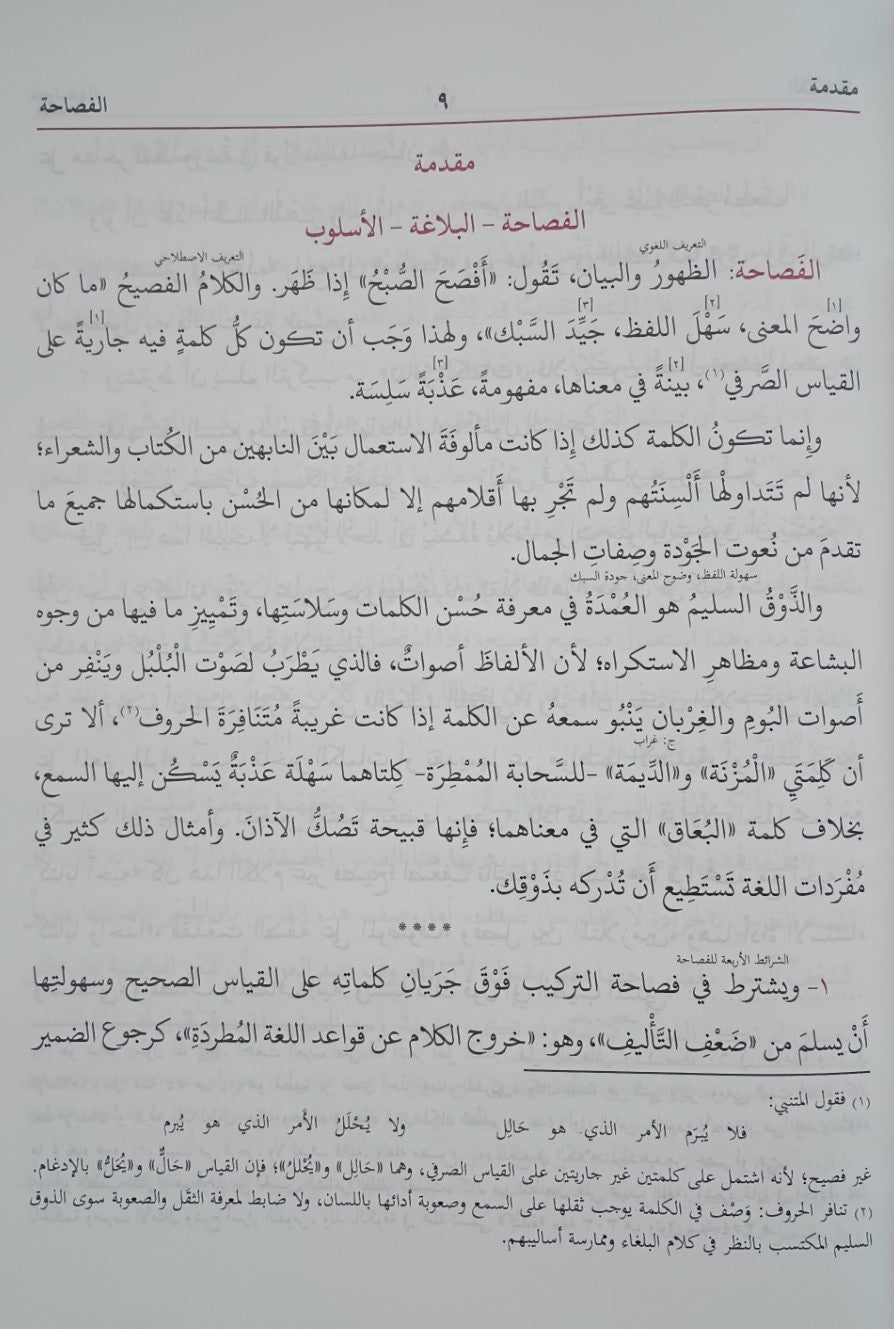 مقدمة ٩ الفصاحة
مقدمة
الفصاحة - البلاغة - الأسلوب
التعريف اللغوي التعريف الاصطلاحي
الفَصاحة: الظهورُ والبيان، تَقُول: «أَفْصَحَ الصُّبْحُ» إِذا ظَهَر. والكلامُ الفصيحُ «ما كان
[١] [٢] [٣] [١]
واضحَ المعنى، سَهْلَ اللفظ، جَيِّدَ السَّبْك»، ولهذا وَجَب أن تكون كلُّ كلمةٍ فيه جاريةً على
[٢] [٣]
القياس الصَّرفي(١)، بينةً في معناها، مفهومةً، عَذْبَةً سَلِسَة.
وإِنما تكونُ الكلمة كذلك إِذا كانت مألوفَةَ الاستعمال بَيْنَ النابهين من الكُتاب والشعراء؛
لأنها لم تَتَداولْها أَلْسِنَتُهم ولم تَجْرِ بها أَقلامهم إلا لمكانها من الحُسْن باستكمالها جميعَ ما
تقدمَ من نُعوت الجَوْدة وصِفاتِ الجمال.
سهولة اللفظ، وضوح المعنى، جودة السبك
والذَّوْقُ السليمُ هو العُمْدَةُ في معرفة حُسْن الكلمات وسَلاسَتِها، وتَمْيِيزِ ما فيها من وجوه
البشاعة ومظاهرِ الاستكراه؛ لأن الألفاظَ أصواتٌ، فالذي يَطْرَبُ لصَوْت الْبُلْبُل ويَنْفِر من
أَصوات البُومِ والغِرْبان يَنْبُو سمعهُ عن الكلمة إذا كانت غريبةً مُتَنَافِرَةَ الحروف(٢)، ألا ترى
ج: غراب
أن كَلِمَتَيِ «الْمُزْنَة» و«الدِّيمَة» -للسَّحابة المُمْطِرَة- كِلتاهما سَهْلَة عَذْبَةٌ يَسْكُن إليها السمع،
بخلاف كلمة «البُعَاق» التي في معناهما؛ فإنها قبيحة تَصُكُّ الآذانَ. وأمثال ذلك كثير في
مُفْرَدَات اللغة تَسْتَطِيع أَن تُدْركه بذَوْقِك.
****
الشرائط الأربعة للفصاحة
١- ويشترط في فصاحة التركيب فَوْقَ جَرَيانِ كلماتِه على القياس الصحيح وسهولتِها
أَنْ يسلمَ من «ضَعْفِ التَّأْليفِ»، وهو: «خروج الكلام عن قواعد اللغة المُطردَةِ»، كرجوع الضمير
(١) فقول المتنبي:
فلا يُبرَم الأمر الذي هو حَالِل ولا يُحْلَلُ الأَمر الذي هو يُبرم
غير فصيح؛ لأنه اشتمل على كلمتين غير جاريتين على القياس الصرفي، وهما «حَالِل» و«يُحْلَلُ»؛ فإن القياس «حَالٌّ» و«يُحَلُّ» بالإدغام.
(٢) تنافر الحروف: وَصْف في الكلمة يوجب ثقلها على السمع وصعوبة أدائها باللسان، ولا ضابط لمعرفة الثقَل والصعوبة سوى الذوق
السليم المكتسب بالنظر في كلام البلغاء وممارسة أساليبهم.